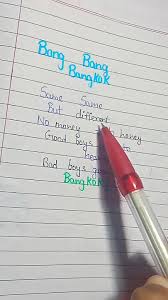 Bang Bang
Bangkok
Same Same
But different
No money honey
Good boys
hea
Bad boys
Bangkok